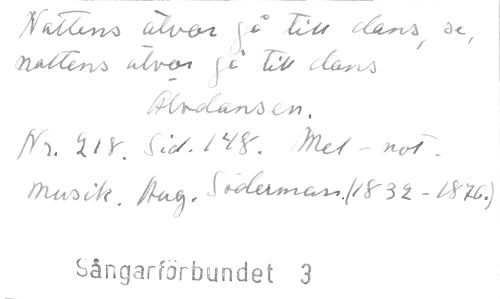 Nattens älvor gå till dans, se,
nattens älvor gå till dans
Älvdansen.
Nr. 218. Sid. 148. Mel-not.
Musik. Aug. Söderman. (1832-1876.)
Sångarförbundet 3